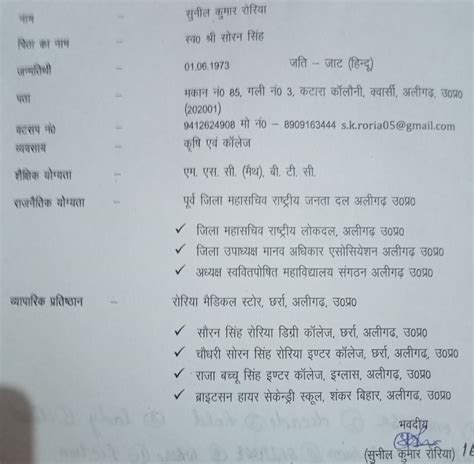 नाम – सुनील कुमार रोरिया
पिता का नाम – स्व० श्री सोरन सिंह
जन्मतिथी – 01.06.1973 जति – जाट (हिन्दू)
पता – मकान नं० 85, गली नं० 3, कटारा कॉलौनी, क्वार्सी, अलीगढ़, उ०प्र०
(202001)
वटसप नं० – 9412624908 मो नं० – 8909163444 s.k.roria05@gmail.com
व्यवसाय – कृषि एवं कॉलेज
शैक्षिक योग्यता – एम. एस. सी. (मैथ), बी. टी. सी.
राजनैतिक योग्यता – पूर्व जिला महासचिव राष्ट्रीय जनता दल अलीगढ़ उ०प्र०
✓ जिला महासचिव राष्ट्रीय लोकदल, अलीगढ़ उ०प्र०
✓ जिला उपाध्यक्ष मानव अधिकार एसोसियेशन अलीगढ़ उ०प्र०
✓ अध्यक्ष स्ववितपोषित महाविद्यालय संगठन अलीगढ़ उ०प्र०
व्यापारिक प्रतिष्ठान – रोरिया मैडिकल स्टोर, छर्रा, अलीगढ़, उ०प्र०
✓ सौरन सिंह रोरिया डिग्री कॉलेज, छर्रा, अलीगढ़, उ०प्र०
✓ चौधरी सोरन सिंह रोरिया इण्टर कॉलेज, छर्रा, अलीगढ़, उ०प्र०
✓ राजा बच्चू सिंह इण्टर कॉलेज, इग्लास, अलीगढ़, उ०प्र०
✓ ब्राइटसन हायर सेकेन्ड्री स्कूल, शंकर बिहार, अलीगढ़, उ०प्र०
भवदीय
(सुनील कुमार रोरिया)